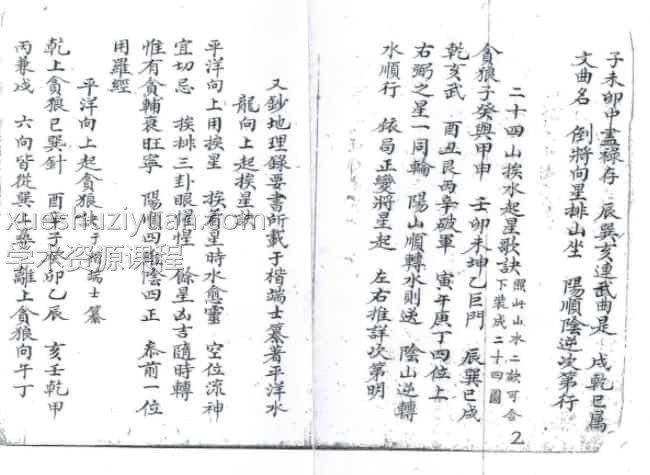 子未卯申盡祿存　辰巽亥連武曲是　戌乾巳屬
文曲名　倒將向星排山坐　陽順陰逆次第行
二十四山挨水起星歌訣 照此山水二訣可合下裝成二十四圖
貪狼子癸與甲申　壬卯未坤乙巨門　辰巽巳戌
乾亥武　酉丑艮丙辛破軍　寅午庚丁四位上
右弼之星一同輪　陽山順轉水則逆　陰山逆轉
水順行　依局正變將星起　左右推詳次第明
2
又鈔地理錄要書所載于楷端士纂著平洋水
龍向上起挨星訣
平洋向上用挨星　挨着星時水愈靈　空位流神
宜切忌　挨排三卦眼惺惺　餘星凶吉隨時轉
惟有貪輔衰旺寧　陽順四維陰四正　泰前一位
用羅經
平洋向上起貪狼訣 于楷端士纂
乾上貪狼巳巽針　酉辛子癸卯乙辰　亥壬乾甲
丙兼戌　六向皆從巽上尋　離上貪狼向午丁
xueshuziyuan.com
学术资源课程